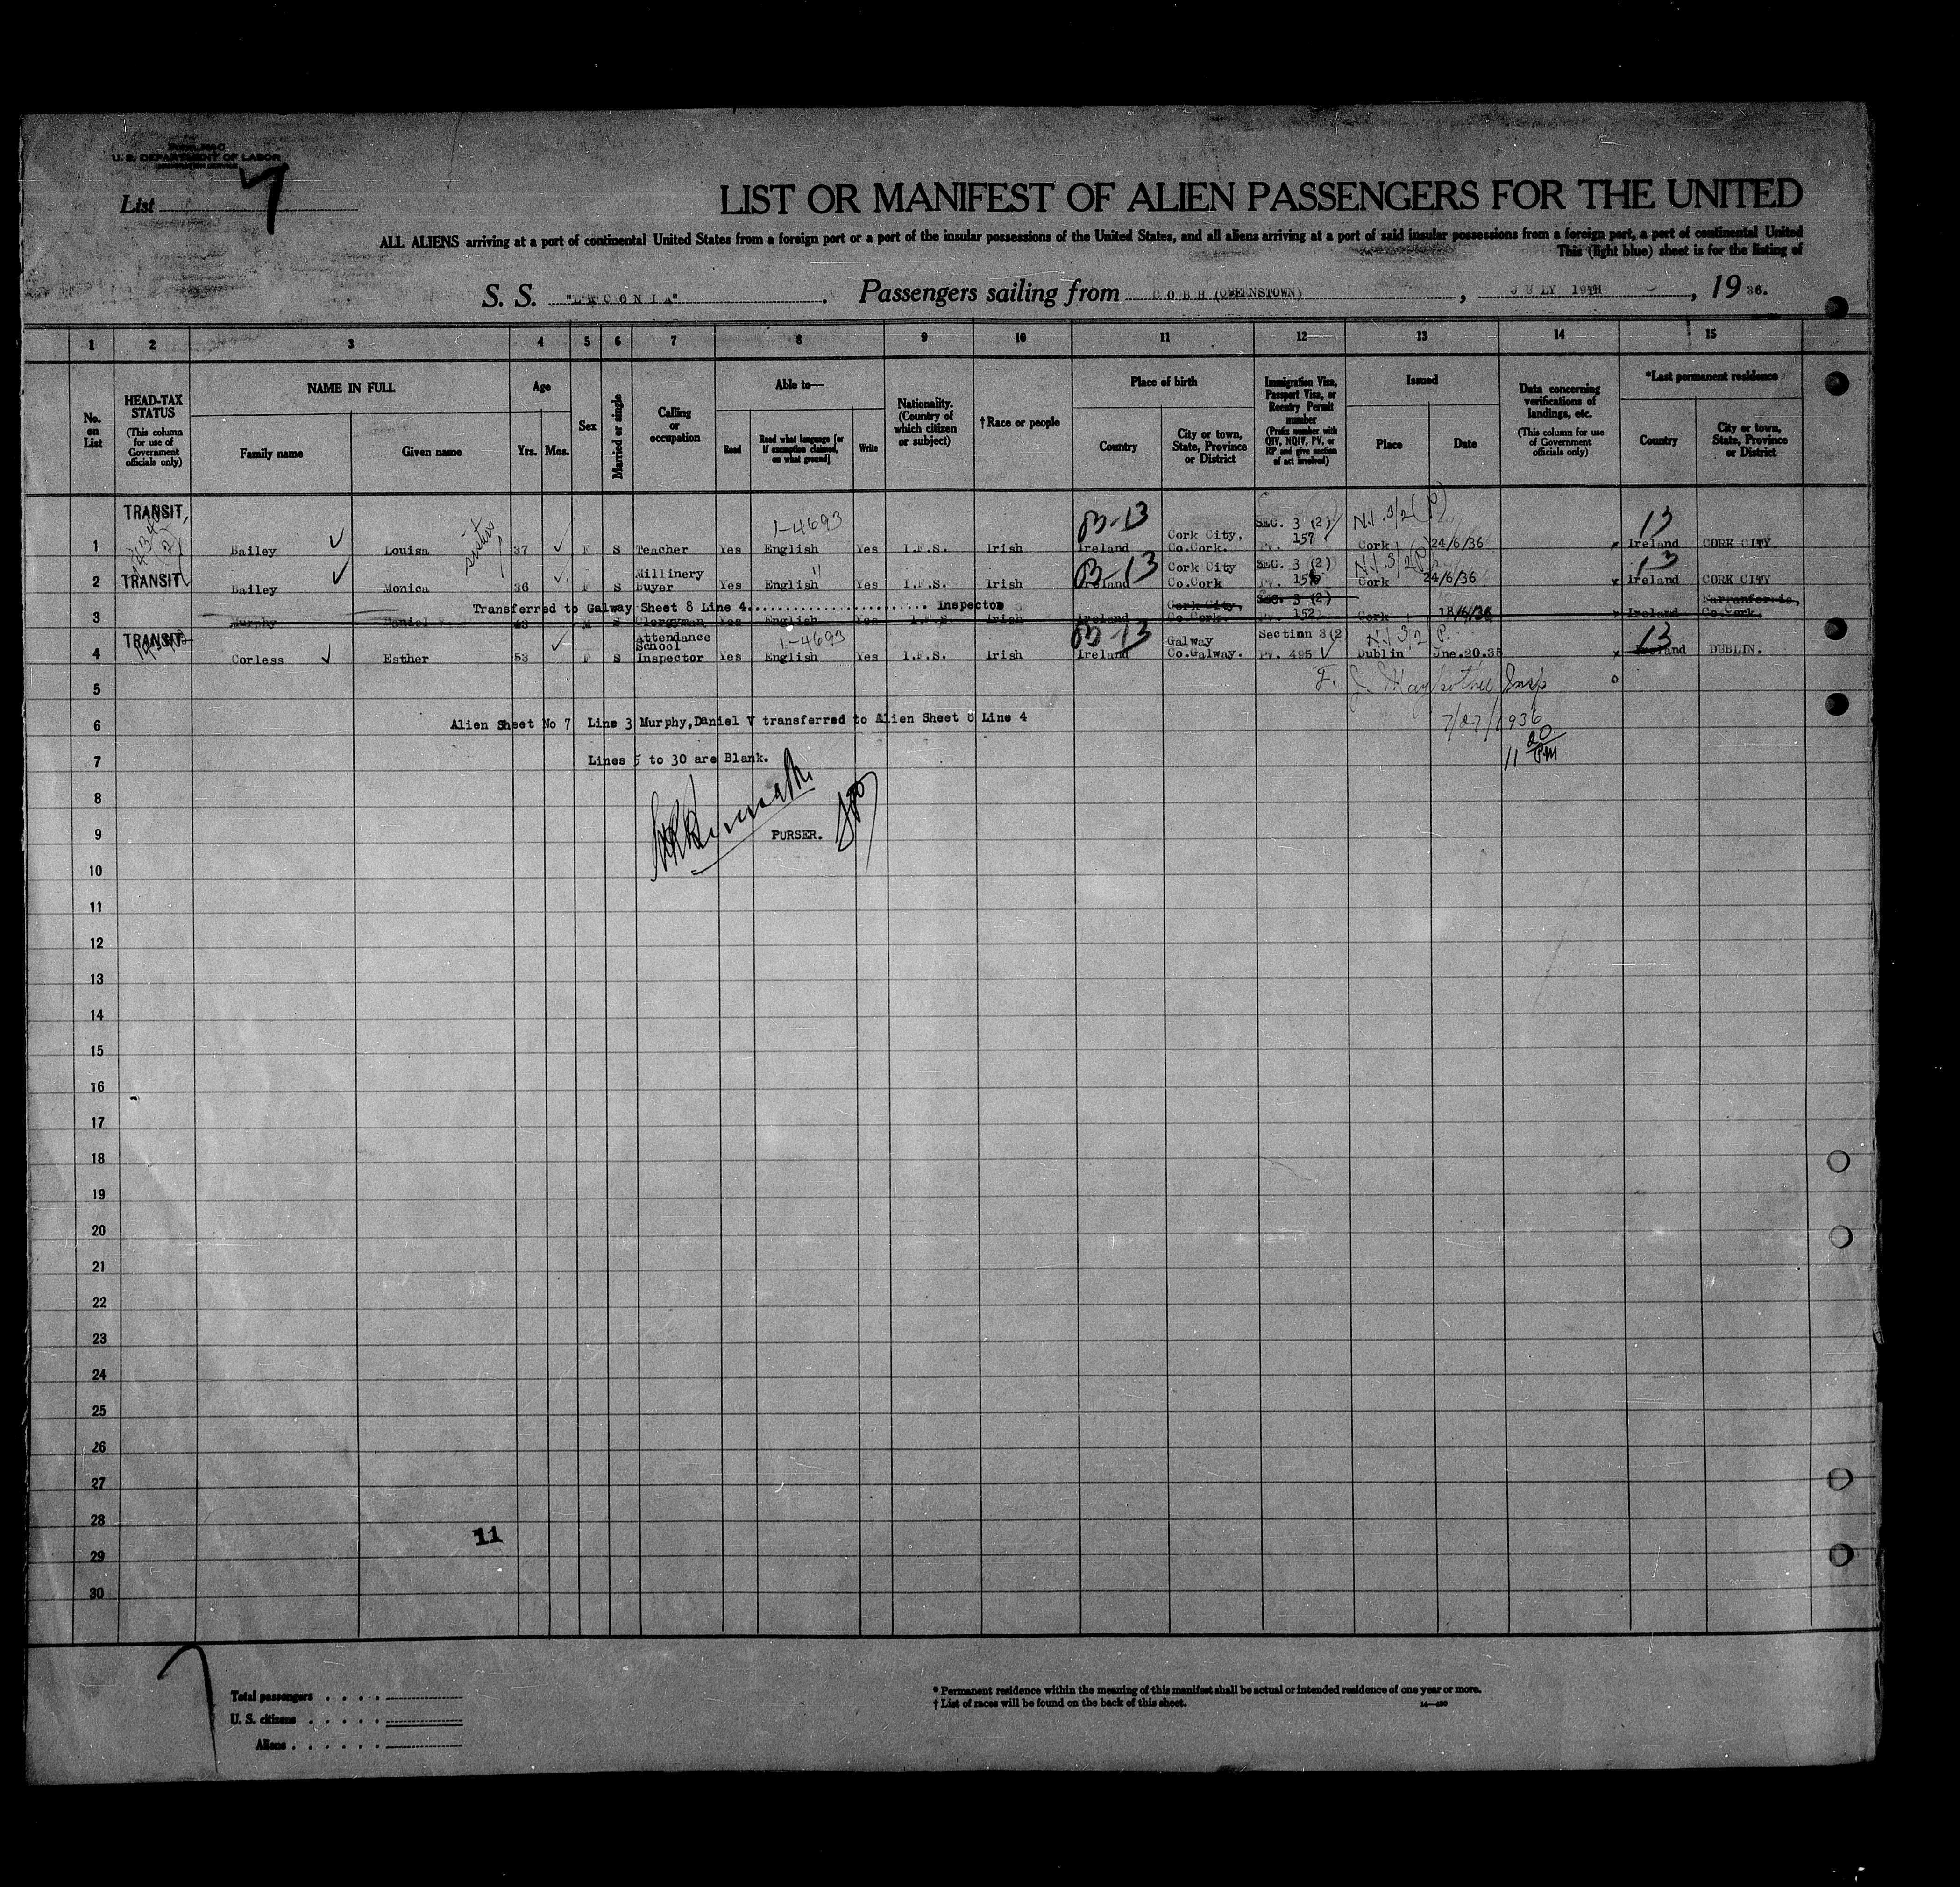 U. S. DEPARTMENT OF LABOR
List 7
LIST OR MANIFEST OF ALIEN PASSENGERS FOR THE UNITED
ALL ALIENS arriving at a port of continental United States from a foreign port or a port of the insular possessions of the United States, and all aliens arriving at a port of said insular possessions from a foreign port, a port of continental United
This (light blue) sheet is for the listing of
S. S. "LACONIA", Passengers sailing from COBH (QUEENSTOWN), JULY 19TH, 1936.
1 2 3 4 5 6 7 8 9 10 11 12 13 14 15
No. on List
HEAD-TAX STATUS (This column for use of Government officials only)
NAME IN FULL
Family name
Given name
Age
Yrs.
Mos.
Sex
Married or single
Calling or occupation
Able to—
Read
Read what language [or if exemption claimed, on what ground]
Write
Nationality. (Country of which citizen or subject)
†Race or people
Place of birth
Country
City or town, State, Province or District
Immigration Visa, Passport Visa, or Reentry Permit number (Prefix number with QIV, NQIV, PV, or RP and give section of act involved)
Issued
Place
Date
Data concerning verifications of landings, etc. (This column for use of Government officials only)
*Last permanent residence
Country
City or town, State, Province or District
1 TRANSIT Bailey Louisa sisters 37 F S Teacher Yes 1-4693 English Yes I.F.S. Irish B-13 Ireland Cork City, Co.Cork. SEC. 3 (2) PV. 157 Cork 24/6/36 x 13 Ireland CORK CITY.
2 TRANSIT Bailey Monica 36 F S Millinery Buyer Yes English " Yes I.F.S. Irish B-13 Ireland Cork City Co.Cork SEC. 3 (2) PV. Cork 24/6/36 x 13 Ireland CORK CITY
Transferred to Galway Sheet 8 Line 4........................ Inspector
3 Murphy Daniel V. M S Clergyman Yes English Yes I.F.S. Irish Ireland Cork City, Co.Cork. SEC. 3 (2) PV. 152 Cork 18/6/36 x Ireland Farranferris, Co.Cork.
4 TRANSIT Corless Esther 53 F S Attendance School Inspector Yes 1-4693 English Yes I.F.S. Irish B-13 Ireland Galway Co.Galway. Section 3(2) PV. 495 Dublin Jne.20.35 x 13 Ireland DUBLIN.
5
7/27/1936
6 Alien Sheet No 7 Line 3 Murphy,Daniel V transferred to Alien Sheet 8 Line 4
11 20 PM
7 Lines 5 to 30 are Blank.
8
9 PURSER.
10
11
12
13
14
15
16
17
18
19
20
21
22
23
24
25
26
27
28
11
29
30
Total passengers . . . .
U. S. citizens . . . . .
Aliens . . . . . .
* Permanent residence within the meaning of this manifest shall be actual or intended residence of one year or more.
† List of races will be found on the back of this sheet.